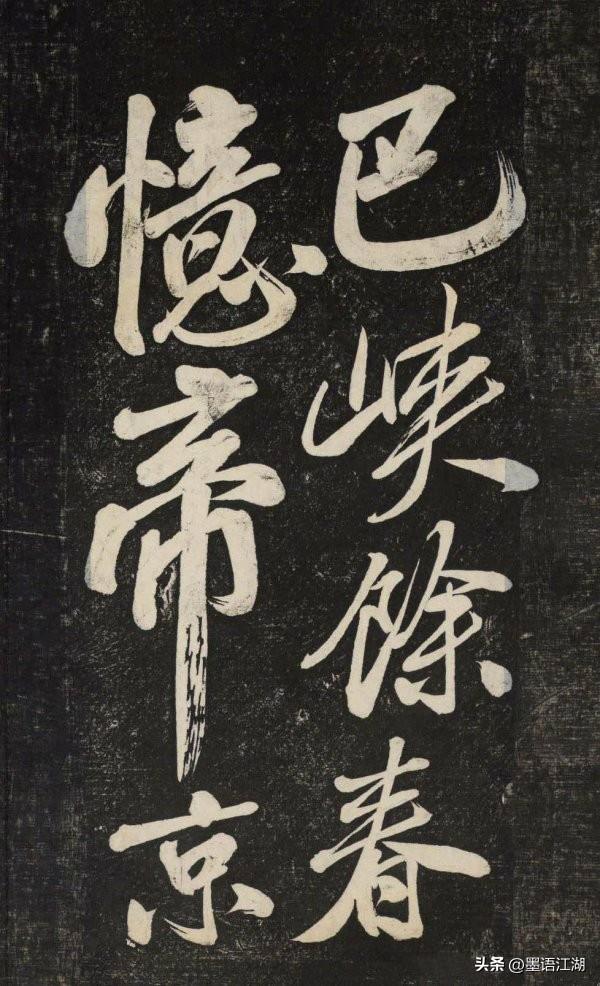 巴峡餘春
憶帝京
头条 @墨语江湖